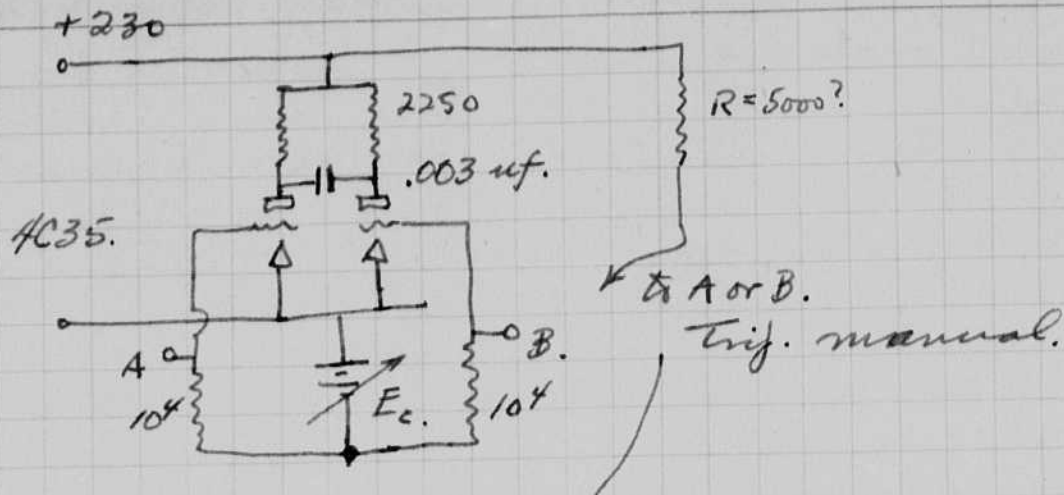 +230
2250
R = 5000?
.003 uf.
4C35.
to A or B.
Trig. manual.
A
B.
10⁴
Ec.
10⁴